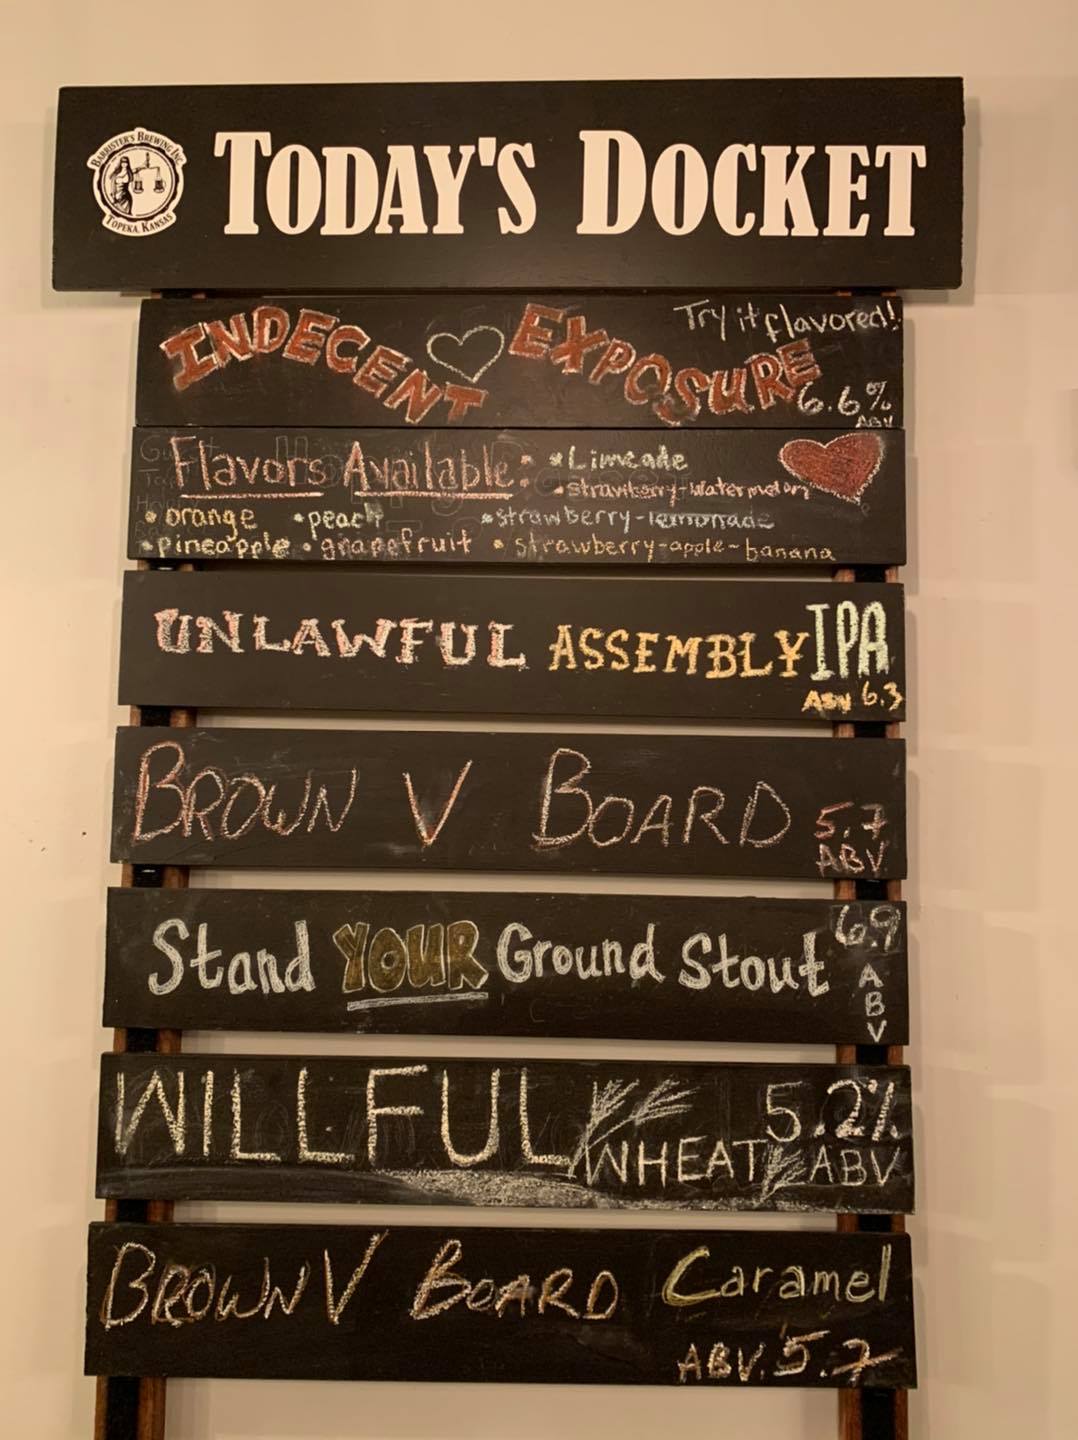 BARRISTER'S BREWING INC.
TOPEKA, KANSAS
TODAY'S DOCKET
INDECENT EXPOSURE
Try it flavored!
6.6%
ABV
Flavors Available:
• Limeade
• strawberry-watermelon
• orange • peach • strawberry-lemonade
• pineapple • grapefruit • strawberry-apple-banana
UNLAWFUL ASSEMBLY IPA
ABV 6.3
BROWN V BOARD 5.7
ABV
Stand YOUR Ground Stout 6.9
ABV
WILLFUL WHEAT 5.2%
ABV
BROWN V BOARD Caramel
ABV. 5.7